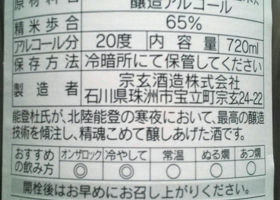 原材料名
醸造アルコール
精米歩合 65%
アルコール分 20度 内容量 720ml
保存方法 冷暗所にて保管してください
製造者 宗玄酒造株式会社
石川県珠洲市宝立町宗玄24-22
能登杜氏が、北陸能登の寒夜において、最高の醸造
技術を傾注し、精魂こめて醸しあげた酒です。
おすすめの飲み方 オンザロック 冷やして 常温 ぬる燗 あつ燗
◎ ◎ ○ ○ ○
開栓後はお早めにお召し上がりください。